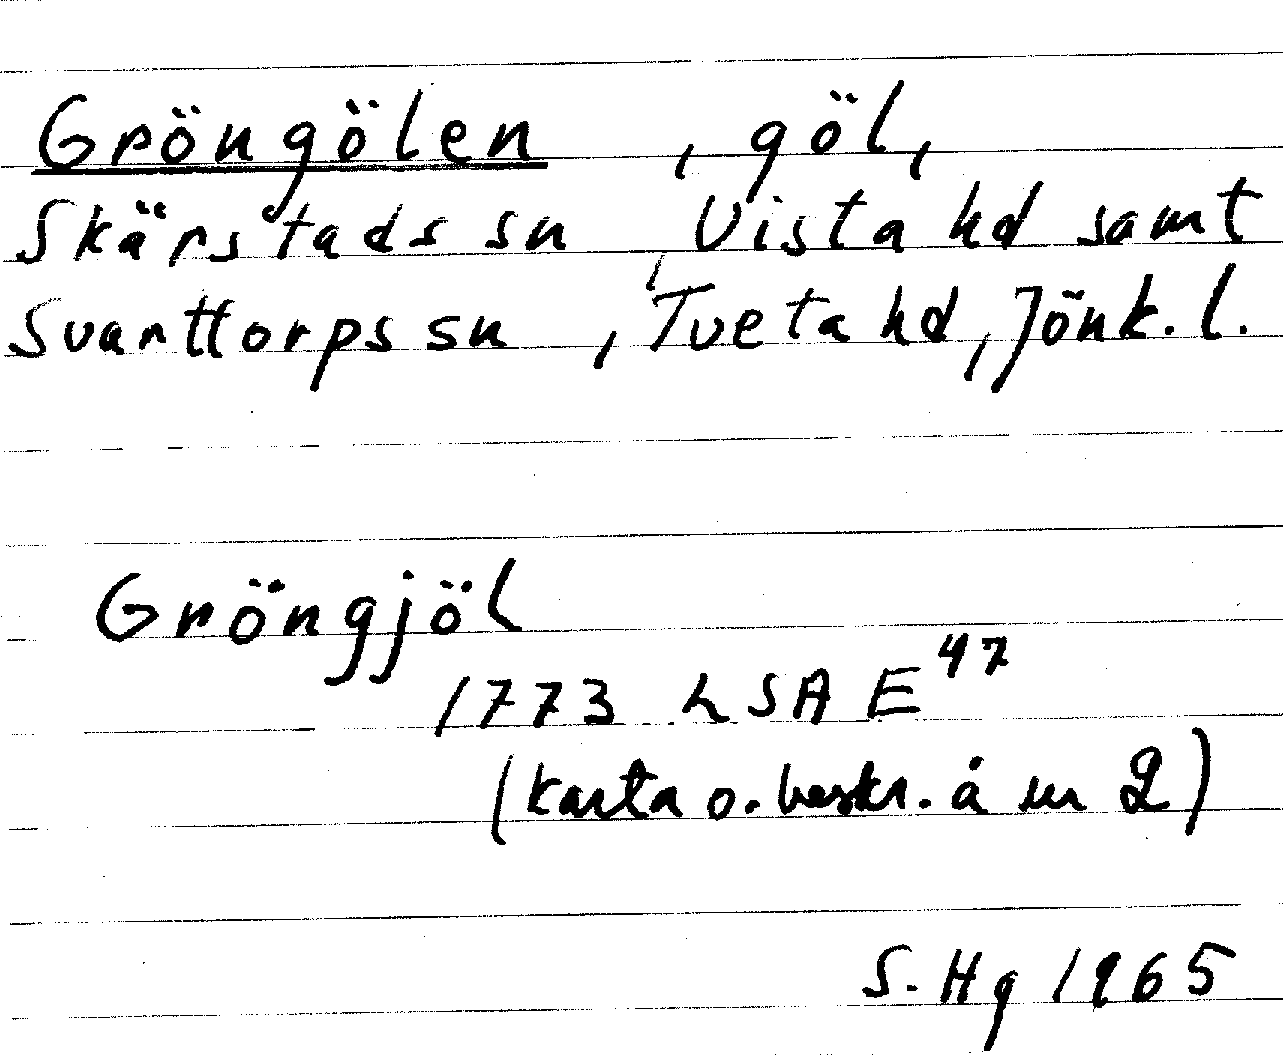 Gröngölen , göl,
Skärstads sn , Vista hd samt
Svarttorps sn , Tveta hd, Jönk. l.
Gröngjöl
1773 LSA E 47
(karta o. beskr. å nr 2)
S. Hg 1965